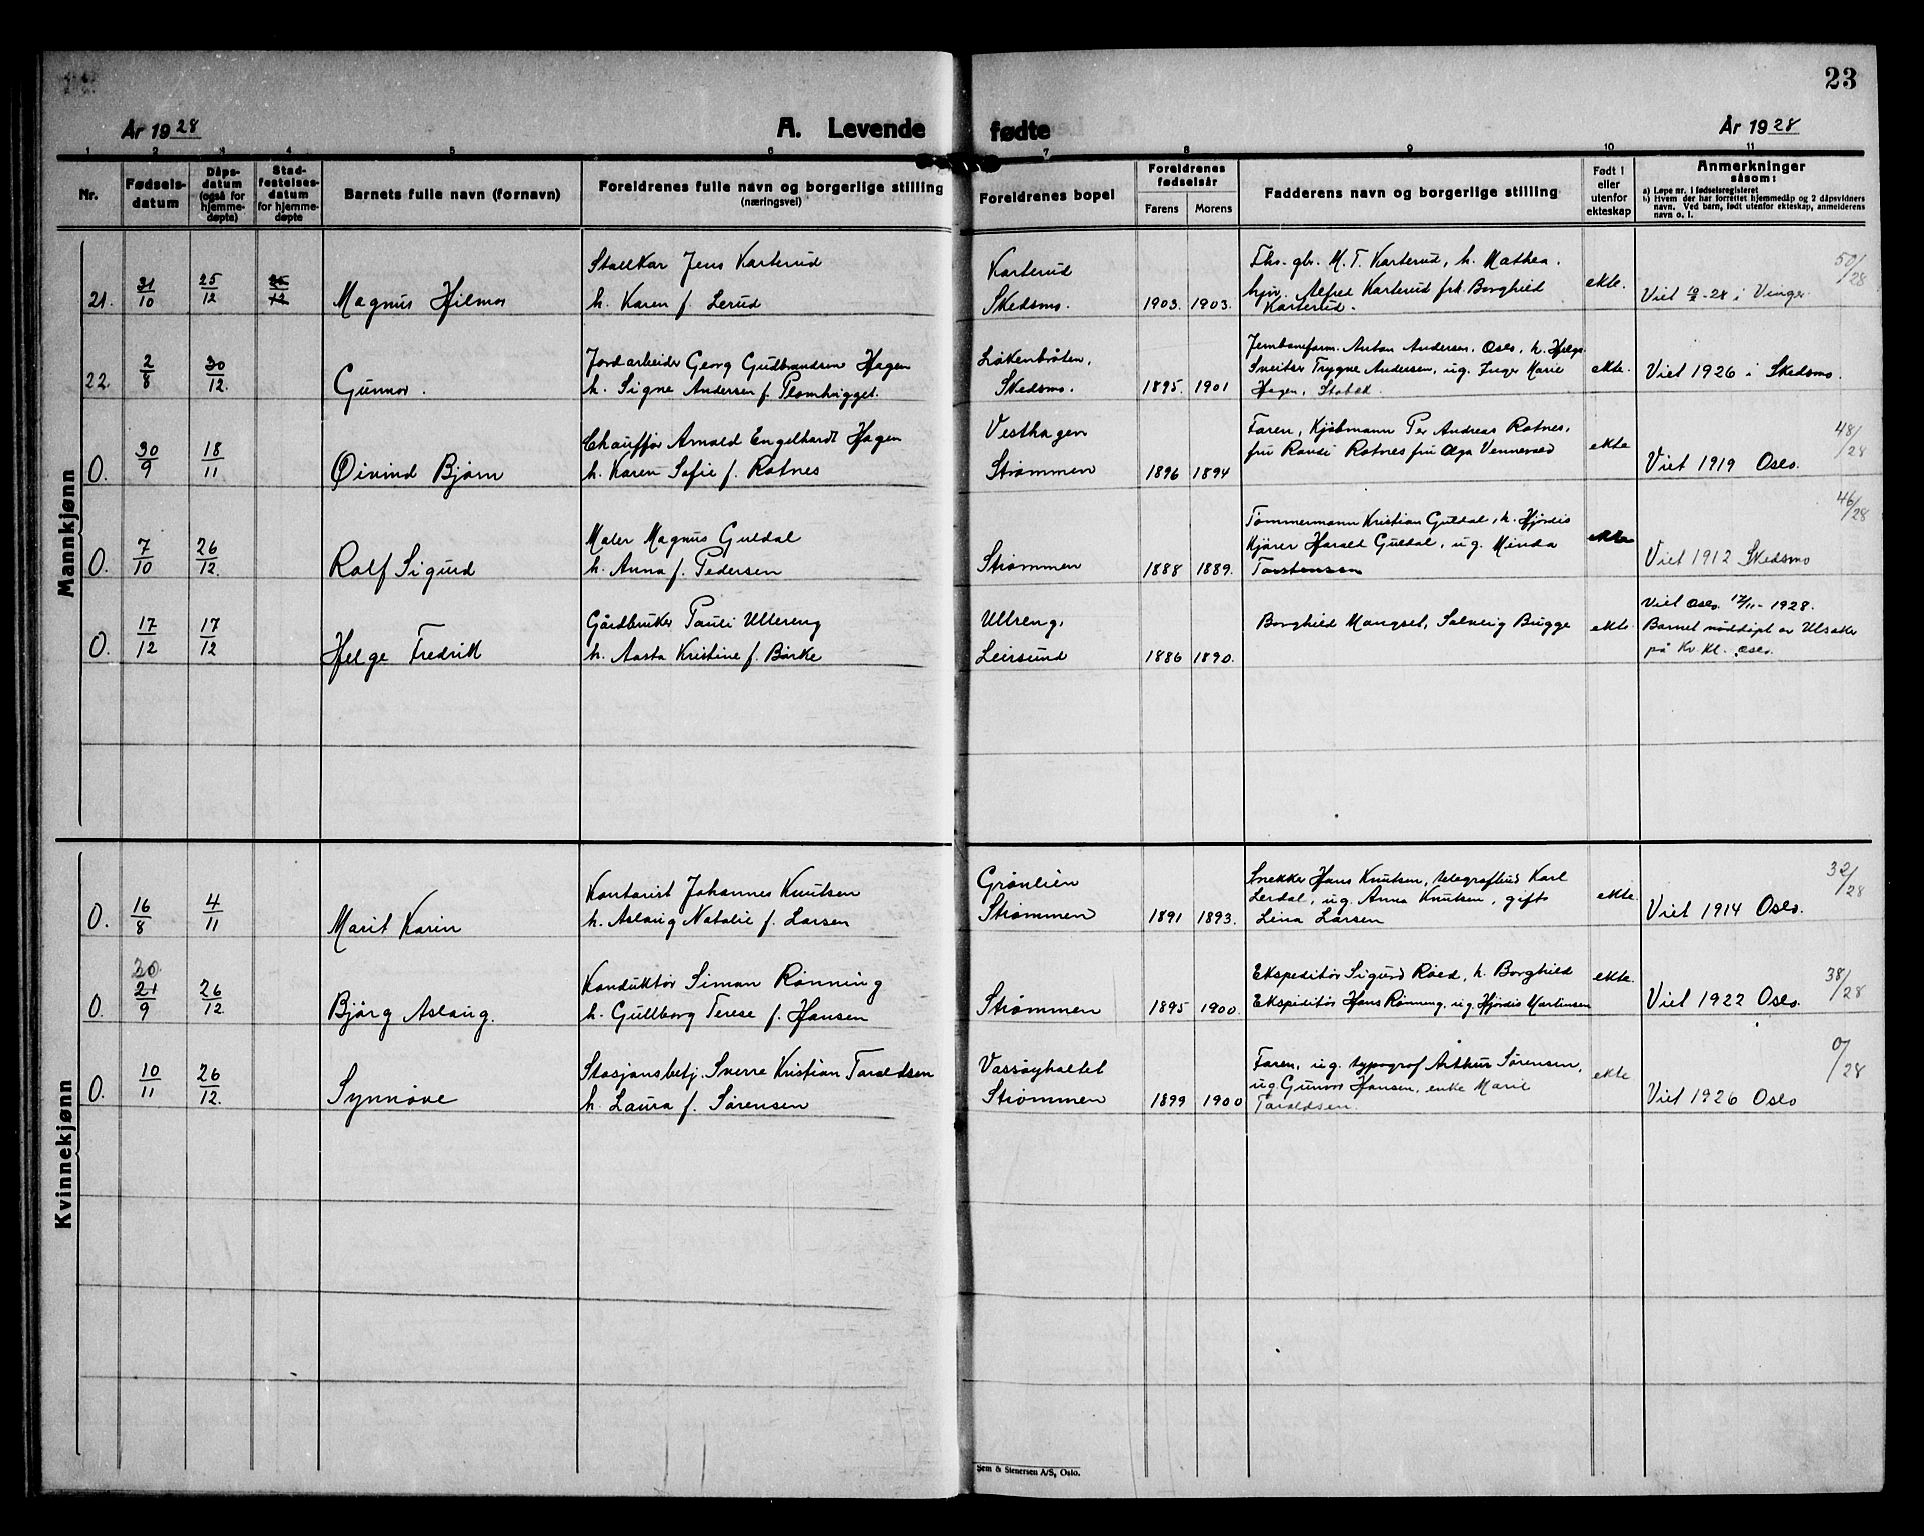 23
År 1928
A. Levende fødte
År 1928
1 2 3 4 5 6 7 8 9 10 11
Nr.
Fødsels-
datum
Dåps-
datum
(også for
hjemme-
døpte)
Stad-
festelses-
datum
for hjemme-
døpte
Barnets fulle navn (fornavn)
Foreldrenes fulle navn og borgerlige stilling
(næringsvei)
Foreldrenes bopel
Foreldrenes
fødselsår
Farens
Morens
Fadderens navn og borgerlige stilling
Født i
eller
utenfor
ekteskap
Anmerkninger
såsom:
a) Løpe nr. i fødselsregisteret
b) Hvem der har forrettet hjemmedåp og 2 dåpsvidners
navn. Ved barn, født utenfor ekteskap, anmelderens
navn o. l.
Mannkjønn
21. 31/10 25/12 25/12
Magnus Hilmar
Stallkar Jens Karterud
h. Karen f. Lerud
Karterud
Skedsmo. 1903. 1903.
Fhv. gbr. M. T. Karterud, h. Mathea.
hjv. Alfred Karterud frk. Borghild
Karterud.
ekte.
Viet 19/2-28 i Vinger.
50/28
22. 2/8 30/12.
Gunnar.
Jordarbeider Georg Gudbrandsen Hagen
h. Signe Andersen f. Plomhugget.
Løkenbråten,
Skedsmo. 1895. 1901
Jernbaneform. Anton Andersen, Oslo, h. Helga
Sveitser Trygve Andersen, ug. Inger Marie
Hagen, Stabek.
ekte.
Viet 1926 i Skedsmo.
0. 30/9 18/11
Øivind Bjørn
Chauffør Arnold Engelhardt Hagen
h. Karen Sofie f. Rotnes
Vesthagen
Strømmen 1896 1894
Faren, Kjøbmann Per Andreas Rotnes,
fru Randi Rotnes fru Olga Vennevold
ekte
Viet 1919 Oslo.
48/28
0. 7/10 26/12.
Rolf Sigurd
Maler Magnus Guldal
h. Anna f. Pedersen
Strømmen 1888 1889.
Tømmermann Kristian Guldal, h. Hjørdis
Kjører Harald Guldal, ug. Minda
Torstensen
ekte
Viet 1912 Skedsmo
46/28
0. 17/12 17/12
Helge Fredrik
Gårdbruker Pauli Ullereng
h. Aasta Kristine f. Børke
Ullreng,
Leirsund 1886 1890.
Borghild Mangset, Solveig Brugge
ekte.
Viet Oslo 17/11-1928.
Barnet nøddøpt av Ulsaker
på Kv. Kl. Oslo.
Kvinnekjønn
0. 16/8 4/11
Marit Karin
Kontorist Johannes Knutsen
h. Aslaug Natalie f. Larsen
Grønlien
Strømmen 1891 1893.
Snekker Hans Knutsen, telegrafbud Karl
Lerdal, ug. Anna Knutsen, gifte
Lina Larsen
ekte.
Viet 1914 Oslo.
32/28
30
0. 21/9 26/12.
Bjørg Aslaug.
Konduktør Simon Rønning
h. Gullborg Terese f. Hansen
Strømmen 1895 1900.
Ekspeditør Sigurd Røed, h. Borghild
Ekspeditør Hans Rønning, ug. Hjørdis Martinsen
ekte.
Viet 1922 Oslo.
38/28
0. 10/11 26/12.
Synnøve
Stasjonsbetj. Sverre Kristian Taraldsen
h. Laura f. Sørensen
Vassøyholtet
Strømmen 1899 1900
Faren, ug. typograf Arthur Sørensen,
ug. Gunvor Hansen, enke Marie
Taraldsen.
ekte
Viet 1926 Oslo
0/28
Sem & Stenersen A/S, Oslo.